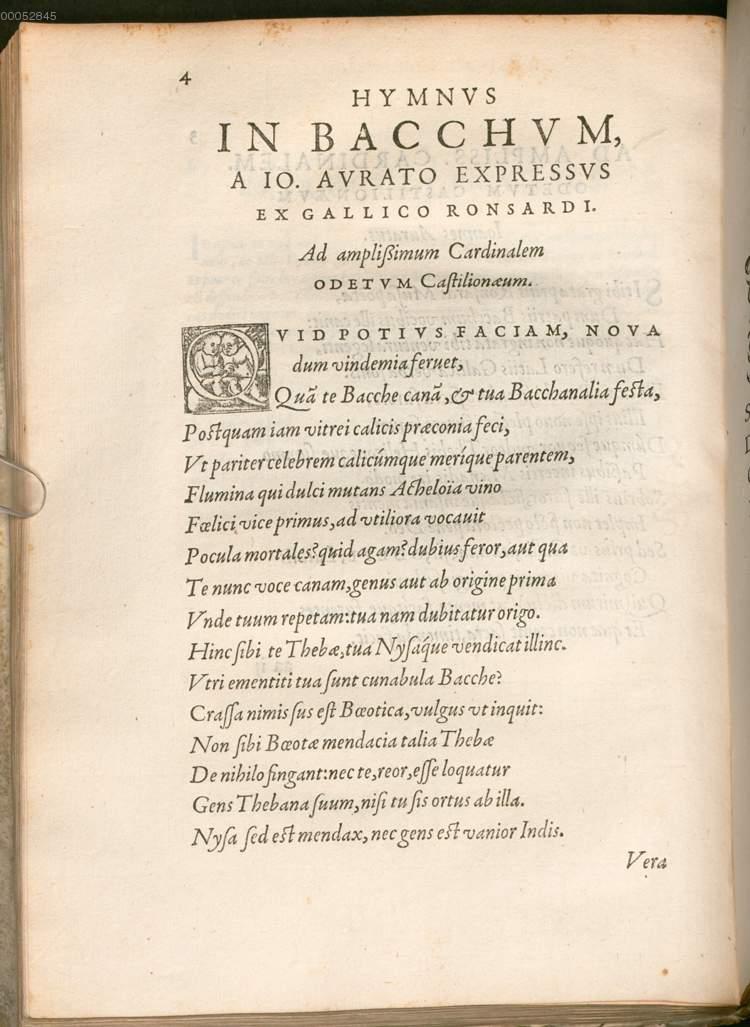 00052845
4
HYMNVS
IN BACCHVM,
A IO. AVRATO EXPRESSVS
EX GALLICO RONSARDI.
Ad amplißimum Cardinalem
ODETVM Caſtilionæum.
QVID POTIVS FACIAM, NOVA
dum vindemia feruet,
Quā te Bacche canā, & tua Bacchanalia feſta,
Poſtquam iam vitrei calicis præconia feci,
Vt pariter celebrem calicúmque meríque parentem,
Flumina qui dulci mutans Acheloïa vino
Fœlici vice primus, ad vtiliora vocauit
Pocula mortales? quid agam? dubius feror, aut qua
Te nunc voce canam, genus aut ab origine prima
Vnde tuum repetam: tua nam dubitatur origo.
Hinc ſibi te Thebæ, tua Nyſáque vendicat illinc.
Vtri ementiti tua ſunt cunabula Bacche?
Craſſa nimis ſus eſt Bœotica, vulgus vt inquit:
Non ſibi Bœotæ mendacia talia Thebæ
De nihilo fingant: nec te, reor, eſſe loquatur
Gens Thebana ſuum, niſi tu ſis ortus ab illa.
Nyſa ſed eſt mendax, nec gens eſt vanior Indis.
Vera